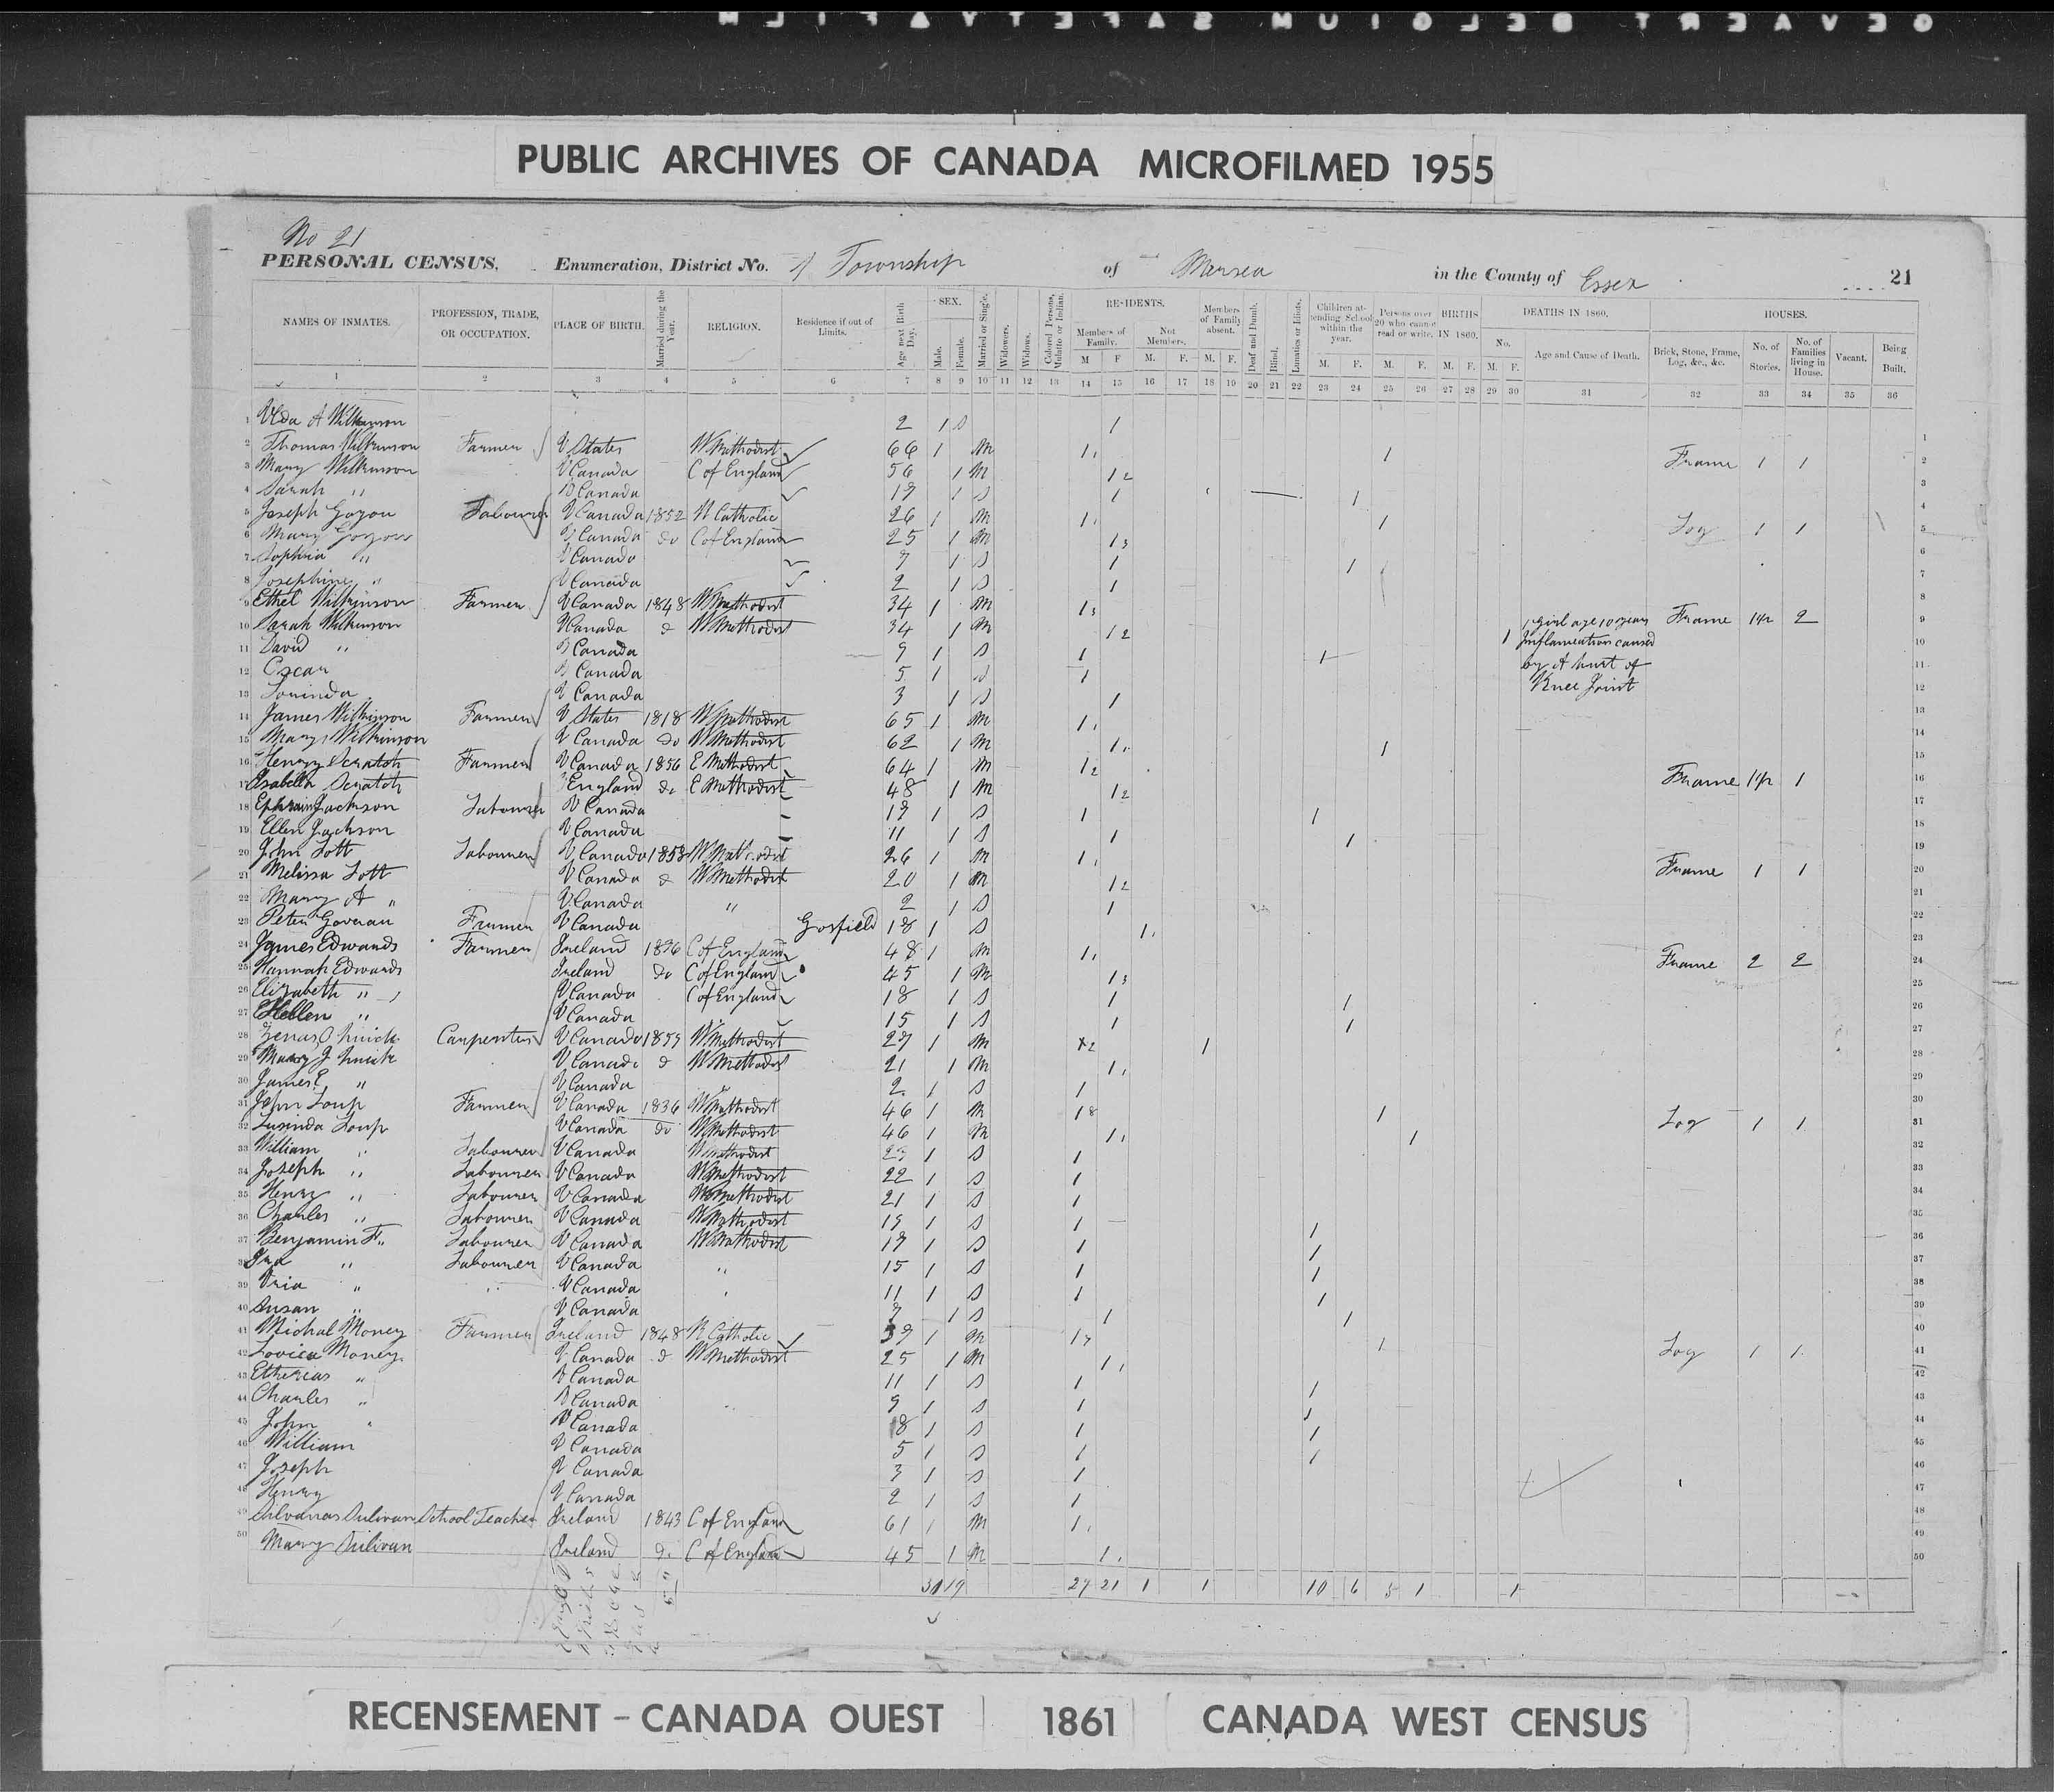 PUBLIC ARCHIVES OF CANADA MICROFILMED 1955
No 21
PERSONAL CENSUS. Enumeration, District No. 1 Township of Mersea in the County of Essex 21
NAMES OF INMATES. PROFESSION, TRADE, OR OCCUPATION. PLACE OF BIRTH. Married during the Year. RELIGION. Residence if out of Limits. Age next Birth Day. SEX. Male. Female. Married or Single. Widowers. Widows. Colored Persons, Mulatto or Indian. RESIDENTS. Members of Family. M F Not Members. M. F. Members of Family absent. M. F. Deaf and Dumb. Blind. Lunatics or Idiots. Children attending School within the year. M. F. Persons over 20 who cannot read or write. M. F. BIRTHS IN 1860. M. F. DEATHS IN 1860. No. M. F. Age and Cause of Death. HOUSES. Brick, Stone, Frame, Log, &c., &c. No. of Stories. No. of Families living in House. Vacant. Being Built.
1 2 3 4 5 6 7 8 9 10 11 12 13 14 15 16 17 18 19 20 21 22 23 24 25 26 27 28 29 30 31 32 33 34 35 36
1 A Wilkinson 2 1 S 1
2 Thomas Wilkinson Farmer U States W Methodist 66 1 M 1 1 Frame 1 1
3 Mary Wilkinson U Canada C of England 56 1 M 1 2
4 Sarah " U Canada 19 1 S 1 1
5 Joseph Goyou Labourer U Canada 1852 R Catholic 26 1 M 1 1 Log 1 1
6 Mary Goyou U Canada do C of England 25 1 M 1 3
7 Sophia " U Canada 7 1 S 1 1
8 Josephine " U Canada 2 1 S 1
9 Ethel Wilkinson Farmer U Canada 1848 W Methodist 34 1 M 1 3 1 girl age 10 years Frame 1 1/2 2
10 Sarah Wilkinson U Canada d W Methodist 34 1 M 1 2 1 Inflamention caused
11 David " U Canada 9 1 S 1 1 by A hurt of
12 Oscar U Canada 5 1 S 1 Knee Joint
13 Lovinda U Canada 3 1 S 1
14 James Wilkinson Farmer U States 1818 W Methodist 65 1 M 1
15 Mary Wilkinson U Canada do W Methodist 62 1 M 1 1
16 Henry Scratch Farmer U Canada 1856 E Methodist 64 1 M 1 2 Frame 1 1/2 1
17 Isabella Scratch England do E Methodist 48 1 M 1 2
18 Ephraim Jackson Labourer U Canada 19 1 S 1 1
19 Ellen Jackson U Canada 11 1 S 1 1
20 John Lott Labourer U Canada 1858 W Methodist 26 1 M 1 Frame 1 1
21 Melissa Lott U Canada d W Methodist 20 1 M 1 2
22 Mary A " U Canada " 2 1 S 1
23 Peter Farmer U Canada Gosfield 18 1 S 1
24 James Edwards Farmer Ireland C of England 48 1 M 1 Frame 2 2
25 Hannah Edwards Ireland do C of England 45 1 M 1 3
26 Elizabeth " U Canada C of England 18 1 S 1 1
27 Hellen " U Canada 15 1 S 1 1
28 Carpenter U Canada 1859 W Methodist 27 1 M 1
29 Mary J U Canada d W Methodist 21 1 M 1
30 James E " U Canada 2 1 S 1
31 John Loup Farmer U Canada 1836 W Methodist 46 1 M 1 8 1 Log 1 1
32 Lusinda Loup U Canada do W Methodist 46 1 M 1 1
33 William " Labourer U Canada W Methodist 1 S 1
34 Joseph " Labourer U Canada W Methodist 22 1 S 1
35 Henry " Labourer U Canada W Methodist 21 1 S 1
36 Charles " Labourer U Canada W Methodist 19 1 S 1 1
37 Benjamin F " Labourer U Canada W Methodist 17 1 S 1 1
38 Ira " Labourer U Canada " 15 1 S 1 1
39 Uria " U Canada 11 1 S 1 1
40 Susan " U Canada 7 1 S 1 1
41 Michal Money Farmer Ireland 1848 R Catholic 39 1 M 1 7 1 Log 1 1
42 Lovica Money U Canada d W Methodist 25 1 M 1
43 " U Canada 11 1 S 1 1
44 Charles " U Canada 9 1 S 1 1
45 John U Canada 8 1 S 1 1
46 William U Canada 5 1 S 1 1
47 Joseph U Canada 3 1 S 1
48 Henry U Canada 2 1 S 1
49 Silvanas Sulivan School Teacher Ireland 1843 C of England 61 1 M 1
50 Mary Sulivan Ireland do C of England 45 1 M 1
31 19 27 21 1 1 10 6 5 1 1
RECENSEMENT - CANADA OUEST 1861 CANADA WEST CENSUS